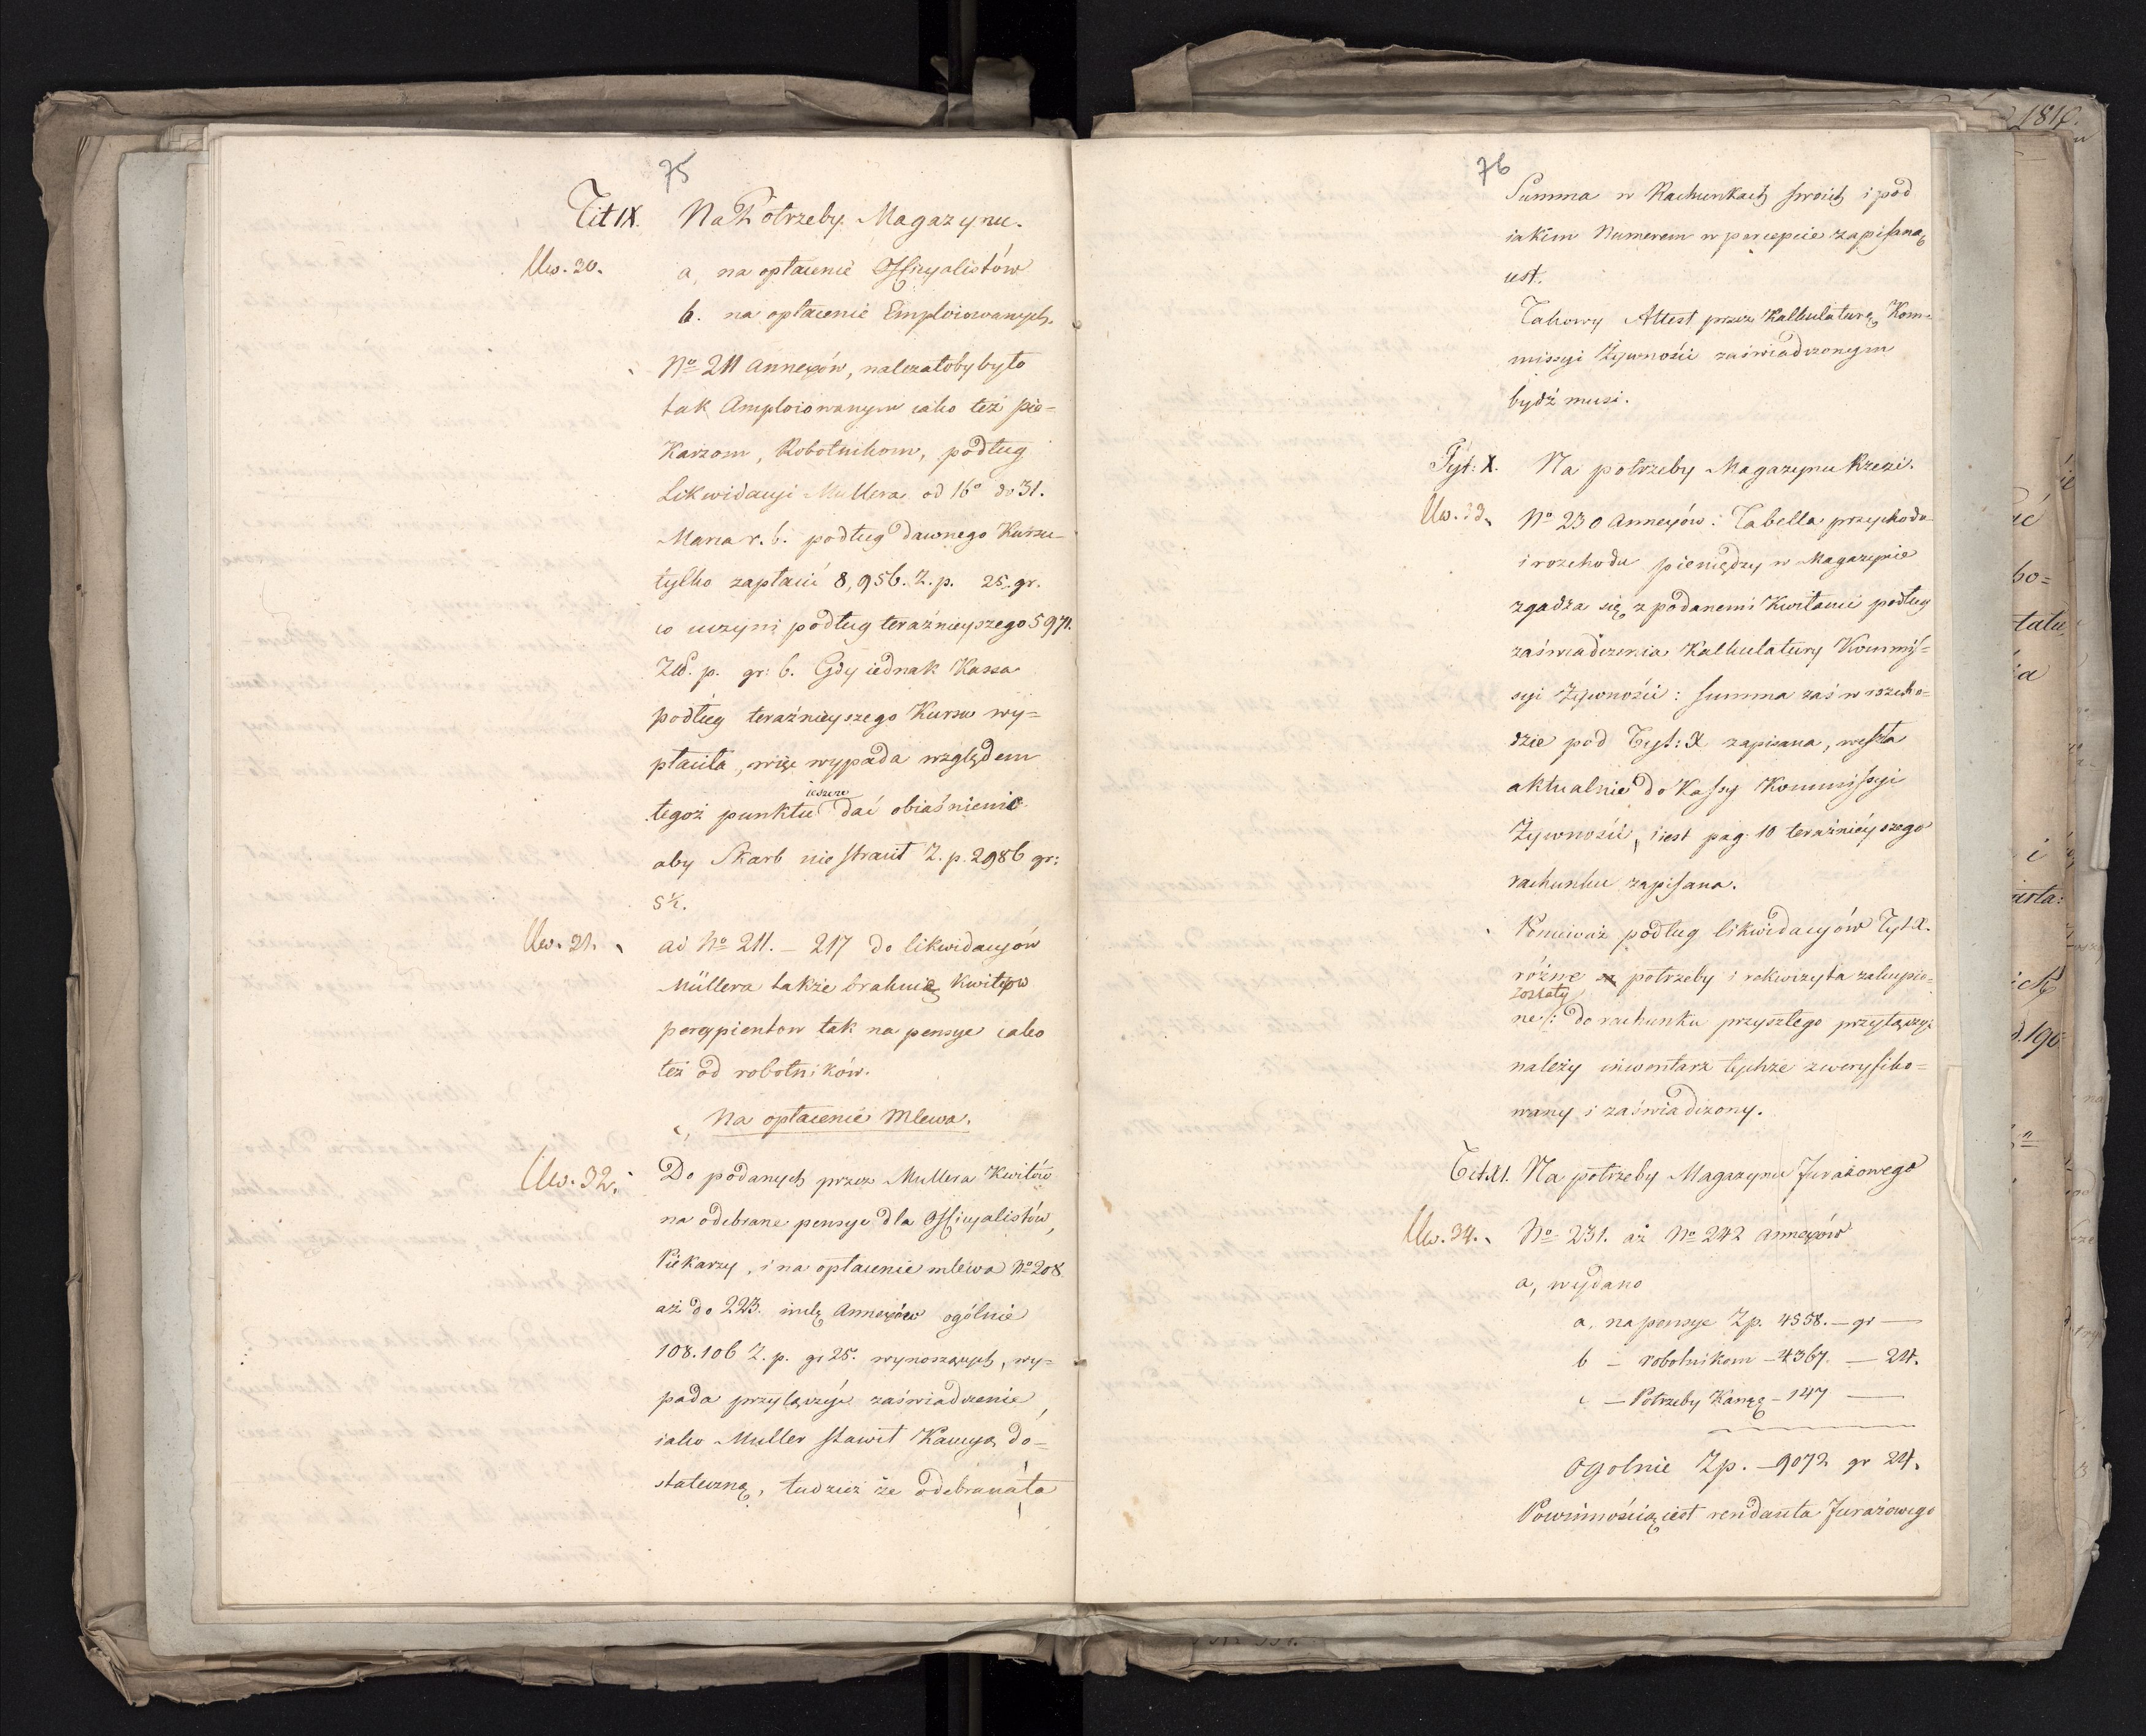 75
Tit IX. Na Potrzeby Magazynu.
Uw. 30. a, na opłacenie Officyalistów
b. na opłacenie Emploiowanych.
No 211 Annexów, należałoby było
tak Amploiowanym iako też pie=
karzom, Robotnikom, podług
Likwidacyi Mullera od 16o do 31.
Marca r. b. podług dawnego Kursu
tylko zapłacić 8,956. Z. p. 25. gr.
co uczyni podług teraźnieyszego 5971.
Zł. p. gr: 6. Gdy iednak Kassa
podług teraźnieyszego Kursu wy=
płaciła, więc wypada względem
tegoż punktu ieszcze dać obiaśnienie
aby Skarb nie stracił Z. p. 2986 gr:
5½.
Uw. 31. ad No 211. – 217 do likwidacyów
Müllera także brakuie Kwitów
percypientow tak na pensye iako
też od robotników.
c, Na opłacenie Mlewa.
Uw. 32. Do podanych przez Mullera Kwitów
na odebrane pensye dla Officyalistów,
Piekarzy, i na opłacenie mlewa No 208
aż do 223. incl. Annexów ogólnie
108.106 Z. p. gr 25. wynoszących, wy=
pada przyłączyć zaświadczenie,
iako Muller stawił Kaucyą do=
stateczną, tudzież że odebrana ta
76
Summa w Rachunkach swoich i pod
iakim Numerem w percepcie zapisaną
iest.
Takowy Attest przez Kalkulaturę Kom=
missyi Żywności zaświadczonym
bydź musi.
Tyt: X. Na potrzeby Magazynu Rzezi.
Uw. 33. No 230 Annexów: Tabella przychodu
i rozchodu pieniędzy w Magazynie
zgadza się z podanemi Kwitami podług
zaświadczenia Kalkulatury Kommis=
syi Żywności: summa zaś w rozcho=
dzie pod Tyt: X zapisana, weszła
aktualnie do Kassy Kommissyi
Żywności, i iest pag: 10 teraźnieyszego
rachunku zapisana.
Ponieważ podług likwidacyów Tyt X.
różne potrzeby i rekwizyta zakupio=
ne zostały: do rachunku przyszłego przyłączyć
należy inwentarz tychże zweryfiko=
wany i zaświadczony.
Tit. XI. Na potrzeby Magazynu Furażowego
Uw. 34. No 231. aż No 242 Annexów
a, wydano
a, na pensye Zp. 4558. – gr —
b – robotnikom – 4367. — 24.
c — Potrzeby – 147 —
Ogolnie Zp. – 9072 gr 24.
Powinnością iest rendanta Furażowego
181